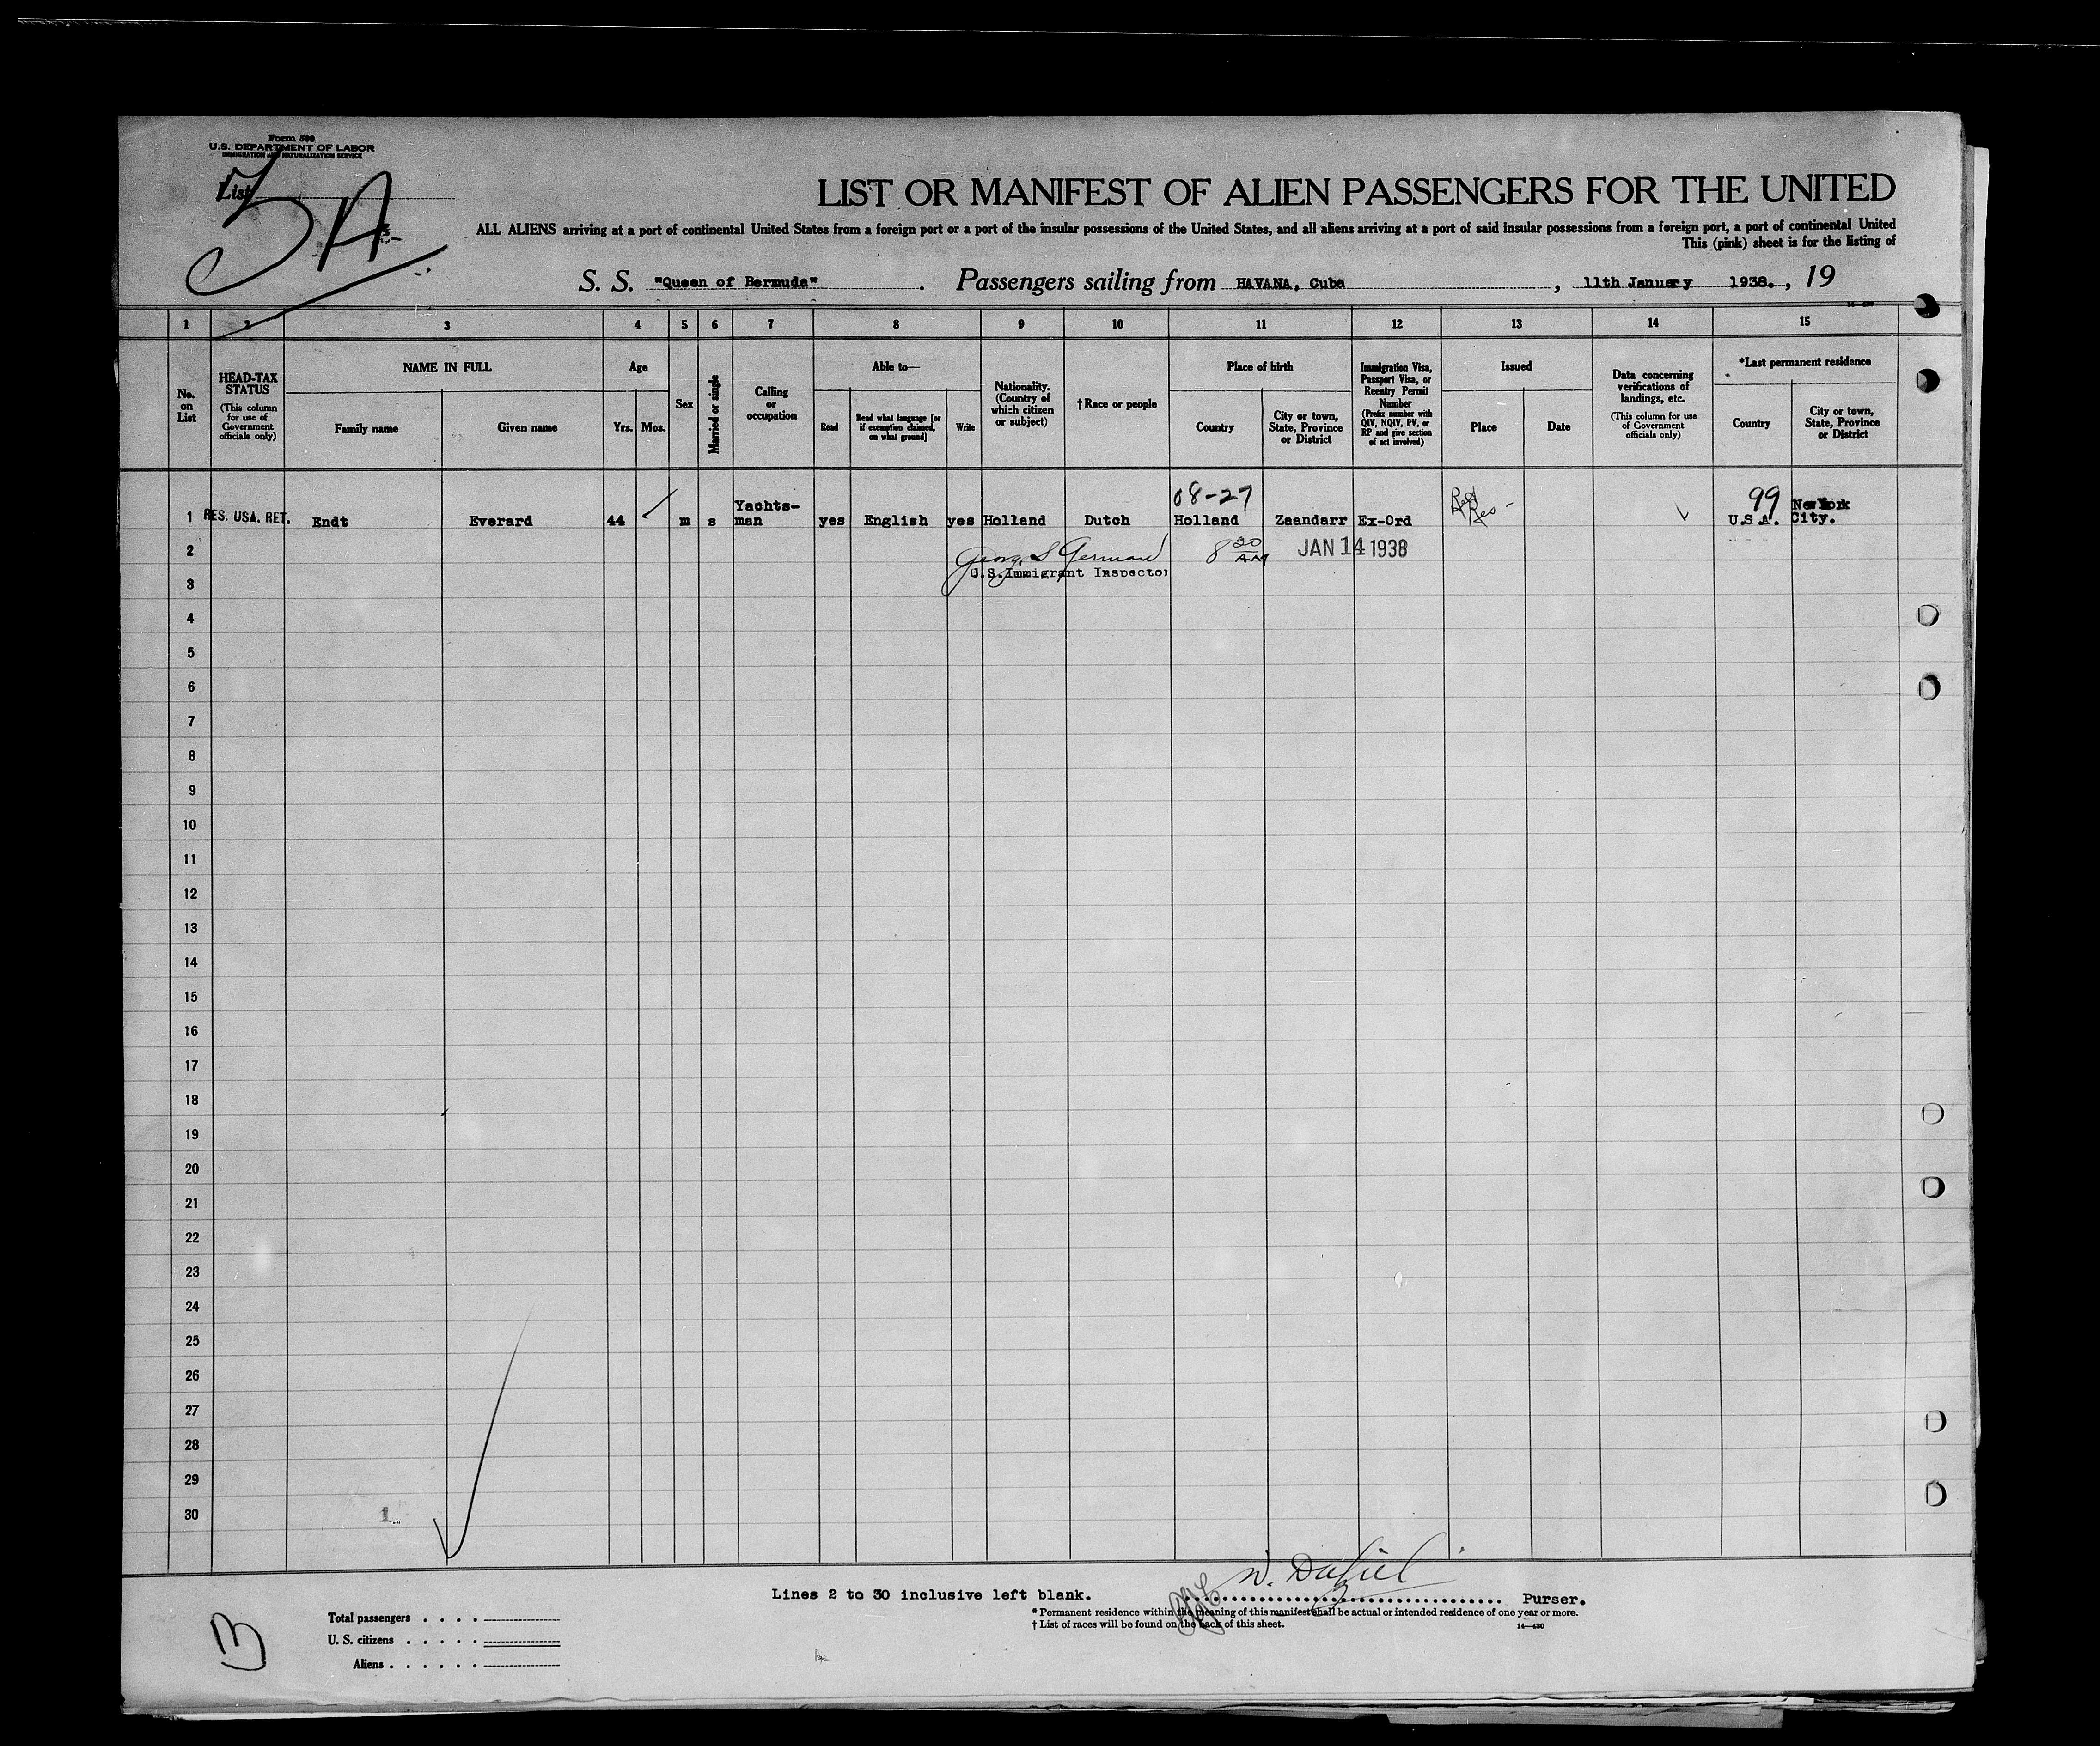 Form 500
U.S. DEPARTMENT OF LABOR
IMMIGRATION AND NATURALIZATION SERVICE
List
5A
LIST OR MANIFEST OF ALIEN PASSENGERS FOR THE UNITED
ALL ALIENS arriving at a port of continental United States from a foreign port or a port of the insular possessions of the United States, and all aliens arriving at a port of said insular possessions from a foreign port, a port of continental United
This (pink) sheet is for the listing of
S. S. "Queen of Bermuda". Passengers sailing from HAVANA, Cuba, 11th January 1938., 19
1 2 3 4 5 6 7 8 9 10 11 12 13 14 15
No. on List
HEAD-TAX STATUS (This column for use of Government officials only)
NAME IN FULL
Family name Given name
Age
Yrs. Mos.
Sex
Married or single
Calling or occupation
Able to—
Read Read what language [or if exemption claimed, on what ground] Write
Nationality. (Country of which citizen or subject)
†Race or people
Place of birth
Country City or town, State, Province or District
Immigration Visa, Passport Visa, or Reentry Permit Number (Prefix number with QIV, NQIV, PV, or RP and give section of act involved)
Issued
Place Date
Data concerning verifications of landings, etc. (This column for use of Government officials only)
*Last permanent residence
Country City or town, State, Province or District
08-27 99
1 RES. USA. RET. Endt Everard 44 m s Yachts-man yes English yes Holland Dutch Holland Zaandarr Ex-Ord U.S.A. New York City.
2 8 30 AM JAN 14 1938
U.S. Immigrant Inspector
3
4
5
6
7
8
9
10
11
12
13
14
15
16
17
18
19
20
21
22
23
24
25
26
27
28
29
30 1
Lines 2 to 30 inclusive left blank.
Purser.
Total passengers
U. S. citizens
Aliens
* Permanent residence within the meaning of this manifest shall be actual or intended residence of one year or more.
† List of races will be found on the back of this sheet.
14—430